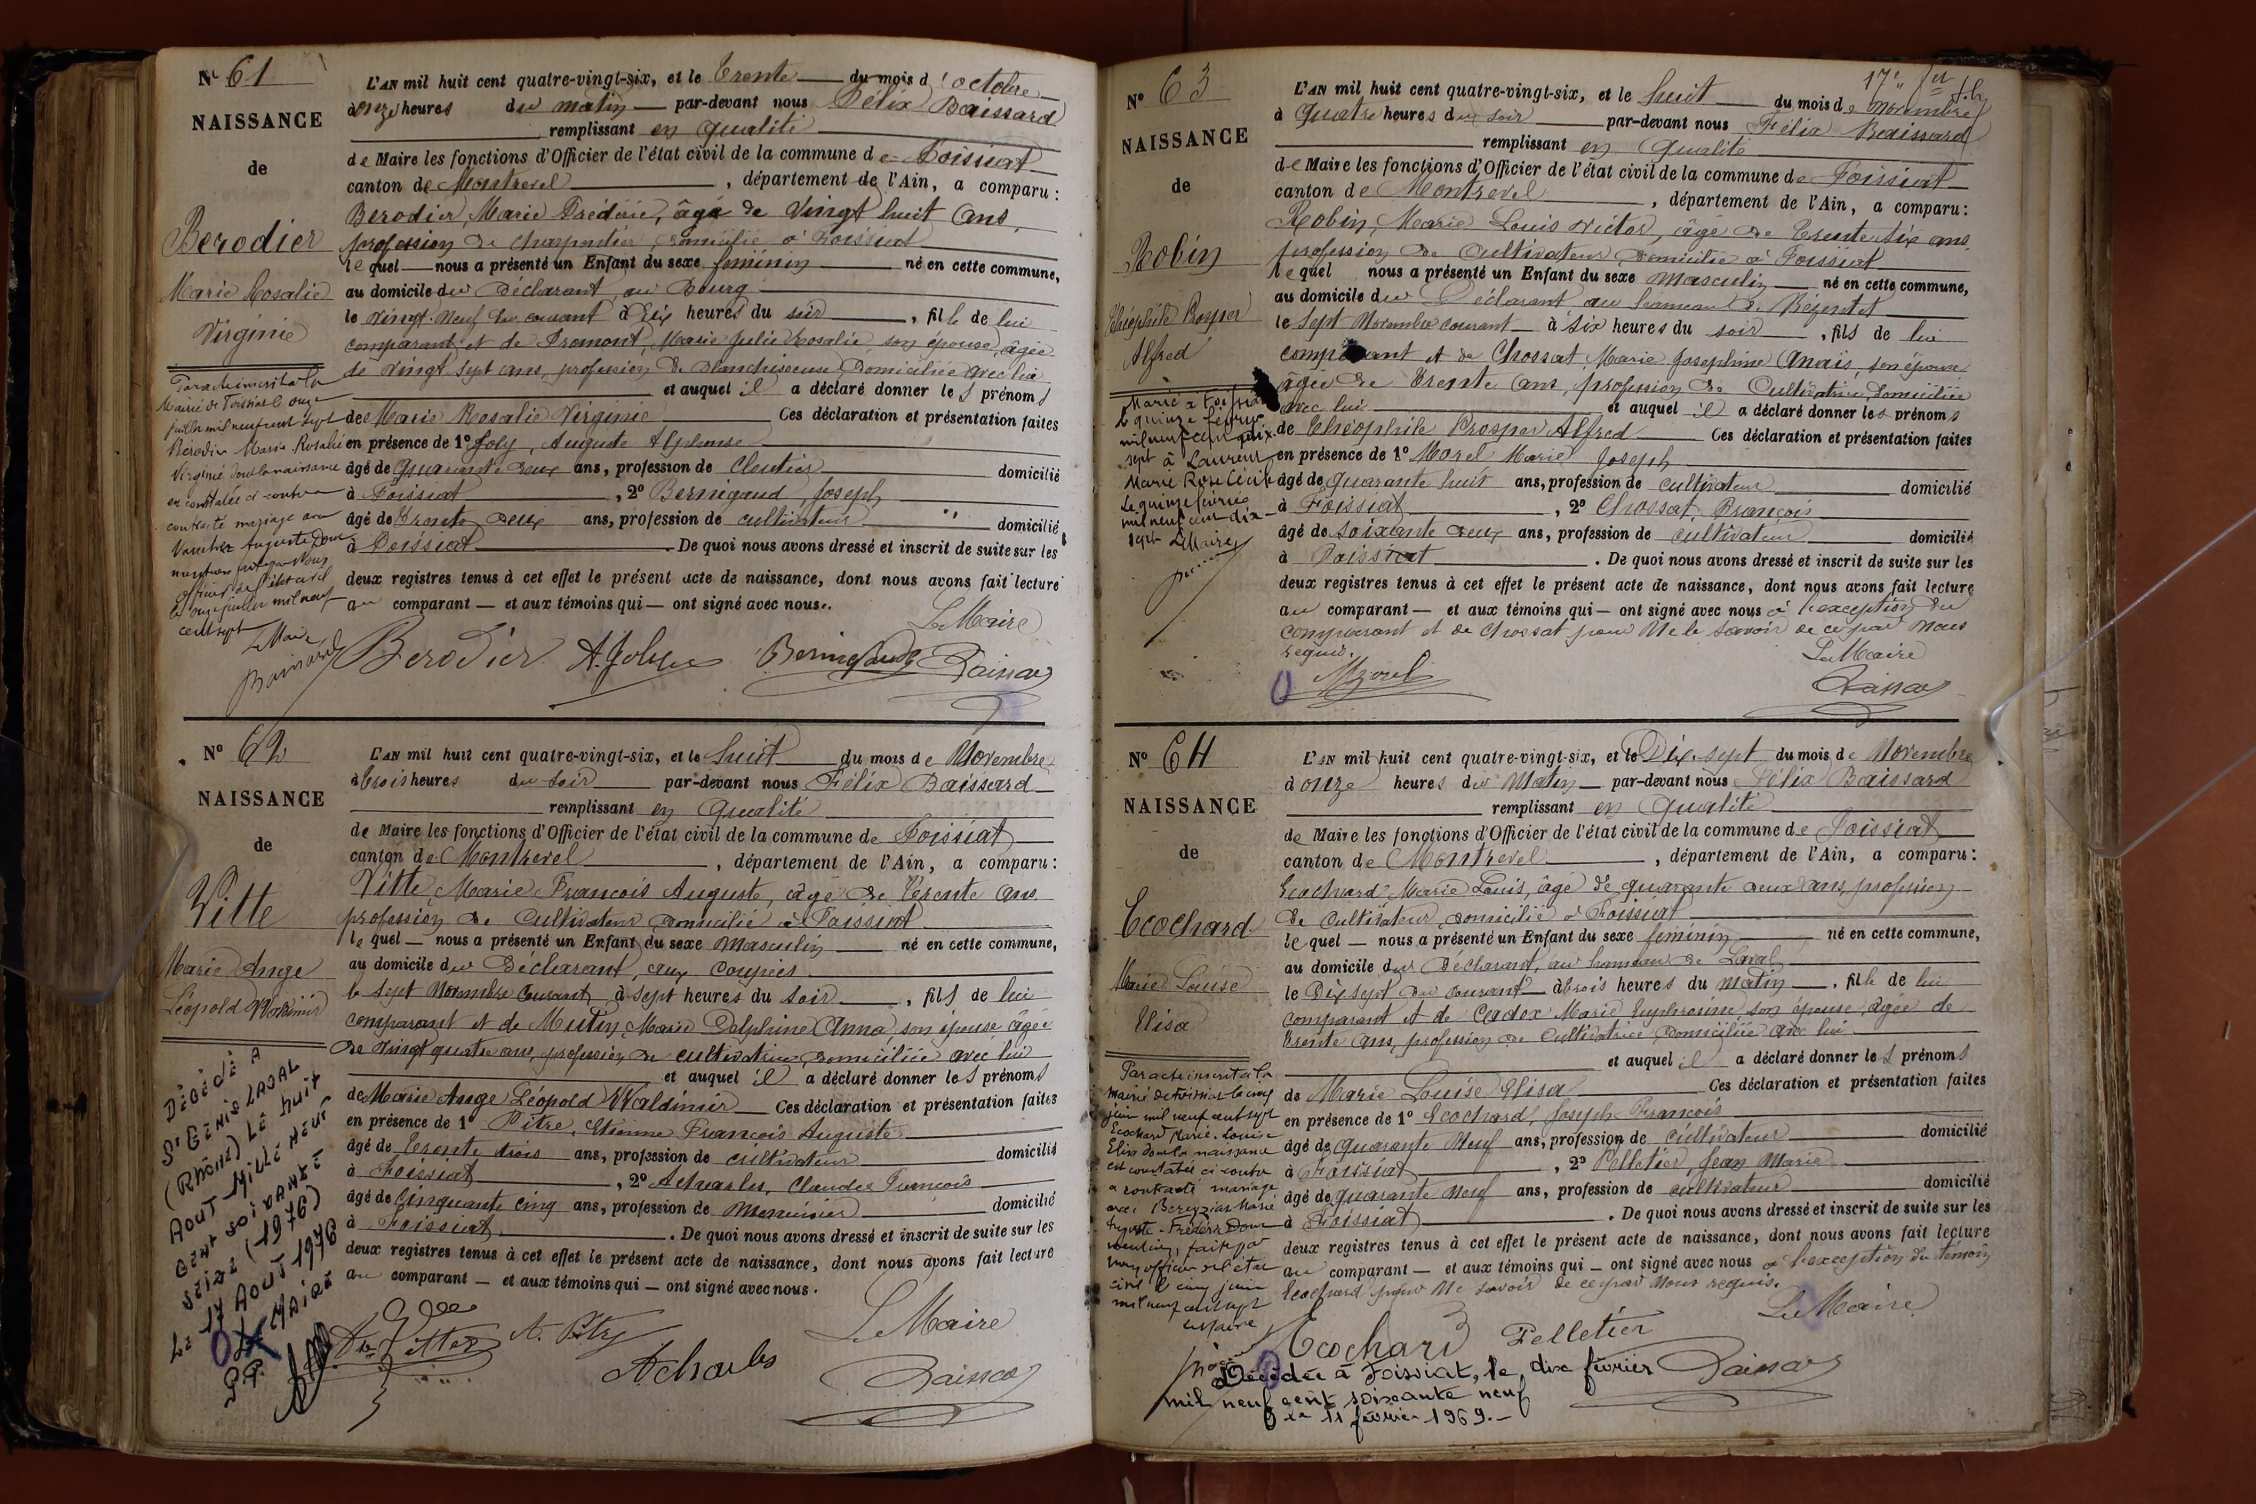 Nº 61
NAISSANCE
de
Berodier
Marie Rosalie
Virginie
Par acte inscrit à la
Mairie de Foissiat le onze
juillet mil neuf cent sept
Bérodier Marie Rosalie
Virginie dont la naissance
est constatée ci contre a
contracté mariage avec
Vauchez Auguste Dont
mention faite par Nous
officier de l'état civil
le onze juillet mil neuf
cent sept
Le Maire
Baissard
L'AN mil huit cent quatre-vingt-six, et le Trente du mois d'octobre
à onze heures du matin par-devant nous Félix Baissard
remplissant en qualité
de Maire les fonctions d'Officier de l'état civil de la commune de Foissiat
canton de Montrevel, département de l'Ain, a comparu :
Berodier, Marie Frédéric, âgé de Vingt huit ans,
profession de charpentier, domicilié à Foissiat
lequel nous a présenté un Enfant du sexe féminin né en cette commune,
au domicile du Déclarant, au Bourg
le vingt-neuf du courant à dix heures du soir, fille de lui
comparant et de Promont, Marie Julie Rosalie, son épouse, âgée
de vingt sept ans, profession de Blanchisseuse, domiciliée avec lui
et auquel il a déclaré donner les prénoms
de Marie Rosalie Virginie Ces déclaration et présentation faites
en présence de 1º Joly, Auguste Alphonse
âgé de quarante deux ans, profession de Cloutier domicilié
à Foissiat, 2º Bernigaud, Joseph
âgé de Trente deux ans, profession de cultivateur domicilié
à Foissiat. De quoi nous avons dressé et inscrit de suite sur les
deux registres tenus à cet effet le présent acte de naissance, dont nous avons fait lecture
au comparant — et aux témoins qui — ont signé avec nous.
Le Maire
Berodier A. Joly Bernigaud Baissard
Nº 62
NAISSANCE
de
Vitte
Marie Ange
Léopold Waldimir
Décédé à
St Génis Laval
(Rhône) le huit
Aout mille neuf
cent soixante
seize (1976)
Le 17 Aout 1976
Le Maire
L'AN mil huit cent quatre-vingt-six, et le huit du mois de Novembre
à trois heures du soir par-devant nous Félix Baissard
remplissant en qualité
de Maire les fonctions d'Officier de l'état civil de la commune de Foissiat
canton de Montrevel, département de l'Ain, a comparu :
Vitte, Marie François Auguste, âgé de Trente ans
profession de Cultivateur, domicilié à Foissiat
lequel — nous a présenté un Enfant du sexe masculin né en cette commune,
au domicile du Déclarant, aux Coupées
le sept Novembre courant, à sept heures du soir, fils de lui
comparant et de Mutin, Marie Delphine Anna, son épouse âgée
de vingt quatre ans, profession de cultivatrice, domiciliée avec lui
et auquel il a déclaré donner les prénoms
de Marie Ange Léopold Waldimir Ces déclaration et présentation faites
en présence de 1º Pitre, Etienne François Auguste
âgé de Trente trois ans, profession de cultivateur domicilié
à Foissiat, 2º Acharles, Claude François
âgé de Cinquante cinq ans, profession de Menuisier domicilié
à Foissiat. De quoi nous avons dressé et inscrit de suite sur les
deux registres tenus à cet effet le présent acte de naissance, dont nous avons fait lecture
au comparant — et aux témoins qui — ont signé avec nous.
Le Maire
Vitte Acharles Baissard
17e
Nº 63
NAISSANCE
de
Robin
Théophile Prosper
Alfred
Marié à Foissiat
le quinze février
mil neuf cent dix
sept à Laurent
Marie Rose Cécile
Le quinze février
mil neuf cent dix
sept Le Maire
L'AN mil huit cent quatre-vingt-six, et le huit du mois de Novembre
à Quatre heures du soir par-devant nous Félix Baissard
remplissant en qualité
de Maire les fonctions d'Officier de l'état civil de la commune de Foissiat
canton de Montrevel, département de l'Ain, a comparu :
Robin, Marie Louis Victor, âgé de Trente six ans
profession de Cultivateur, domicilié à Foissiat
lequel nous a présenté un Enfant du sexe masculin né en cette commune,
au domicile du Déclarant au hameau de
le sept Novembre courant à six heures du soir, fils de lui
comparant et de Chossat, Marie Josephine Anaïs, son épouse
âgée de Trente ans, profession de Cultivatrice, domiciliée
avec lui et auquel il a déclaré donner les prénoms
de Théophile Prosper Alfred Ces déclaration et présentation faites
en présence de 1º Morel Marie Joseph
âgé de quarante huit ans, profession de cultivateur domicilié
à Foissiat, 2º Chossat, François
âgé de soixante deux ans, profession de cultivateur domicilié
à Foissiat. De quoi nous avons dressé et inscrit de suite sur les
deux registres tenus à cet effet le présent acte de naissance, dont nous avons fait lecture
au comparant — et aux témoins qui — ont signé avec nous à l'exception du
comparant et de Chossat pour Ne le savoir de ce par Nous
requis.
Le Maire
Morel Baissard
Nº 64
NAISSANCE
de
Ecochard
Marie Louise
Elisa
Par acte inscrit à la
mairie de Foissiat le cinq
juin mil neuf cent sept
Ecochard Marie-Louise
Elisa dont la naissance
est constatée ci-contre
a contracté mariage
avec Bereyziat Marie
Auguste Frédéric Dont
mention faite par
nous officier de l'état
civil le cinq juin
mil neuf cent sept
Le Maire
L'AN mil huit cent quatre-vingt-six, et le Dix-sept du mois de Novembre
à onze heures du Matin par-devant nous Félix Baissard
remplissant en qualité
de Maire les fonctions d'Officier de l'état civil de la commune de Foissiat
canton de Montrevel, département de l'Ain, a comparu :
Ecochard Marie Louis, âgé de quarante deux ans, profession
de Cultivateur, domicilié à Foissiat
lequel — nous a présenté un Enfant du sexe féminin né en cette commune,
au domicile du Déclarant, au hameau de Laval
le Dix sept du courant à trois heures du matin, fille de lui
comparant et de Cadox Marie Euphrosine, son épouse, âgée de
trente ans, profession de Cultivatrice, domiciliée avec lui
et auquel il a déclaré donner les prénoms
de Marie Louise Elisa Ces déclaration et présentation faites
en présence de 1º Ecochard, Joseph François
âgé de quarante Neuf ans, profession de cultivateur domicilié
à Foissiat, 2º Pelletier, Jean Marie
âgé de quarante Neuf ans, profession de cultivateur domicilié
à Foissiat. De quoi nous avons dressé et inscrit de suite sur les
deux registres tenus à cet effet le présent acte de naissance, dont nous avons fait lecture
au comparant — et aux témoins qui — ont signé avec nous à l'exception du témoin
Ecochard pour Ne savoir de ce par Nous requis.
Le Maire
Ecochard Pelletier Baissard
Décédée à Foissiat, le dix février
mil neuf cent soixante neuf
Le 11 février 1969.-